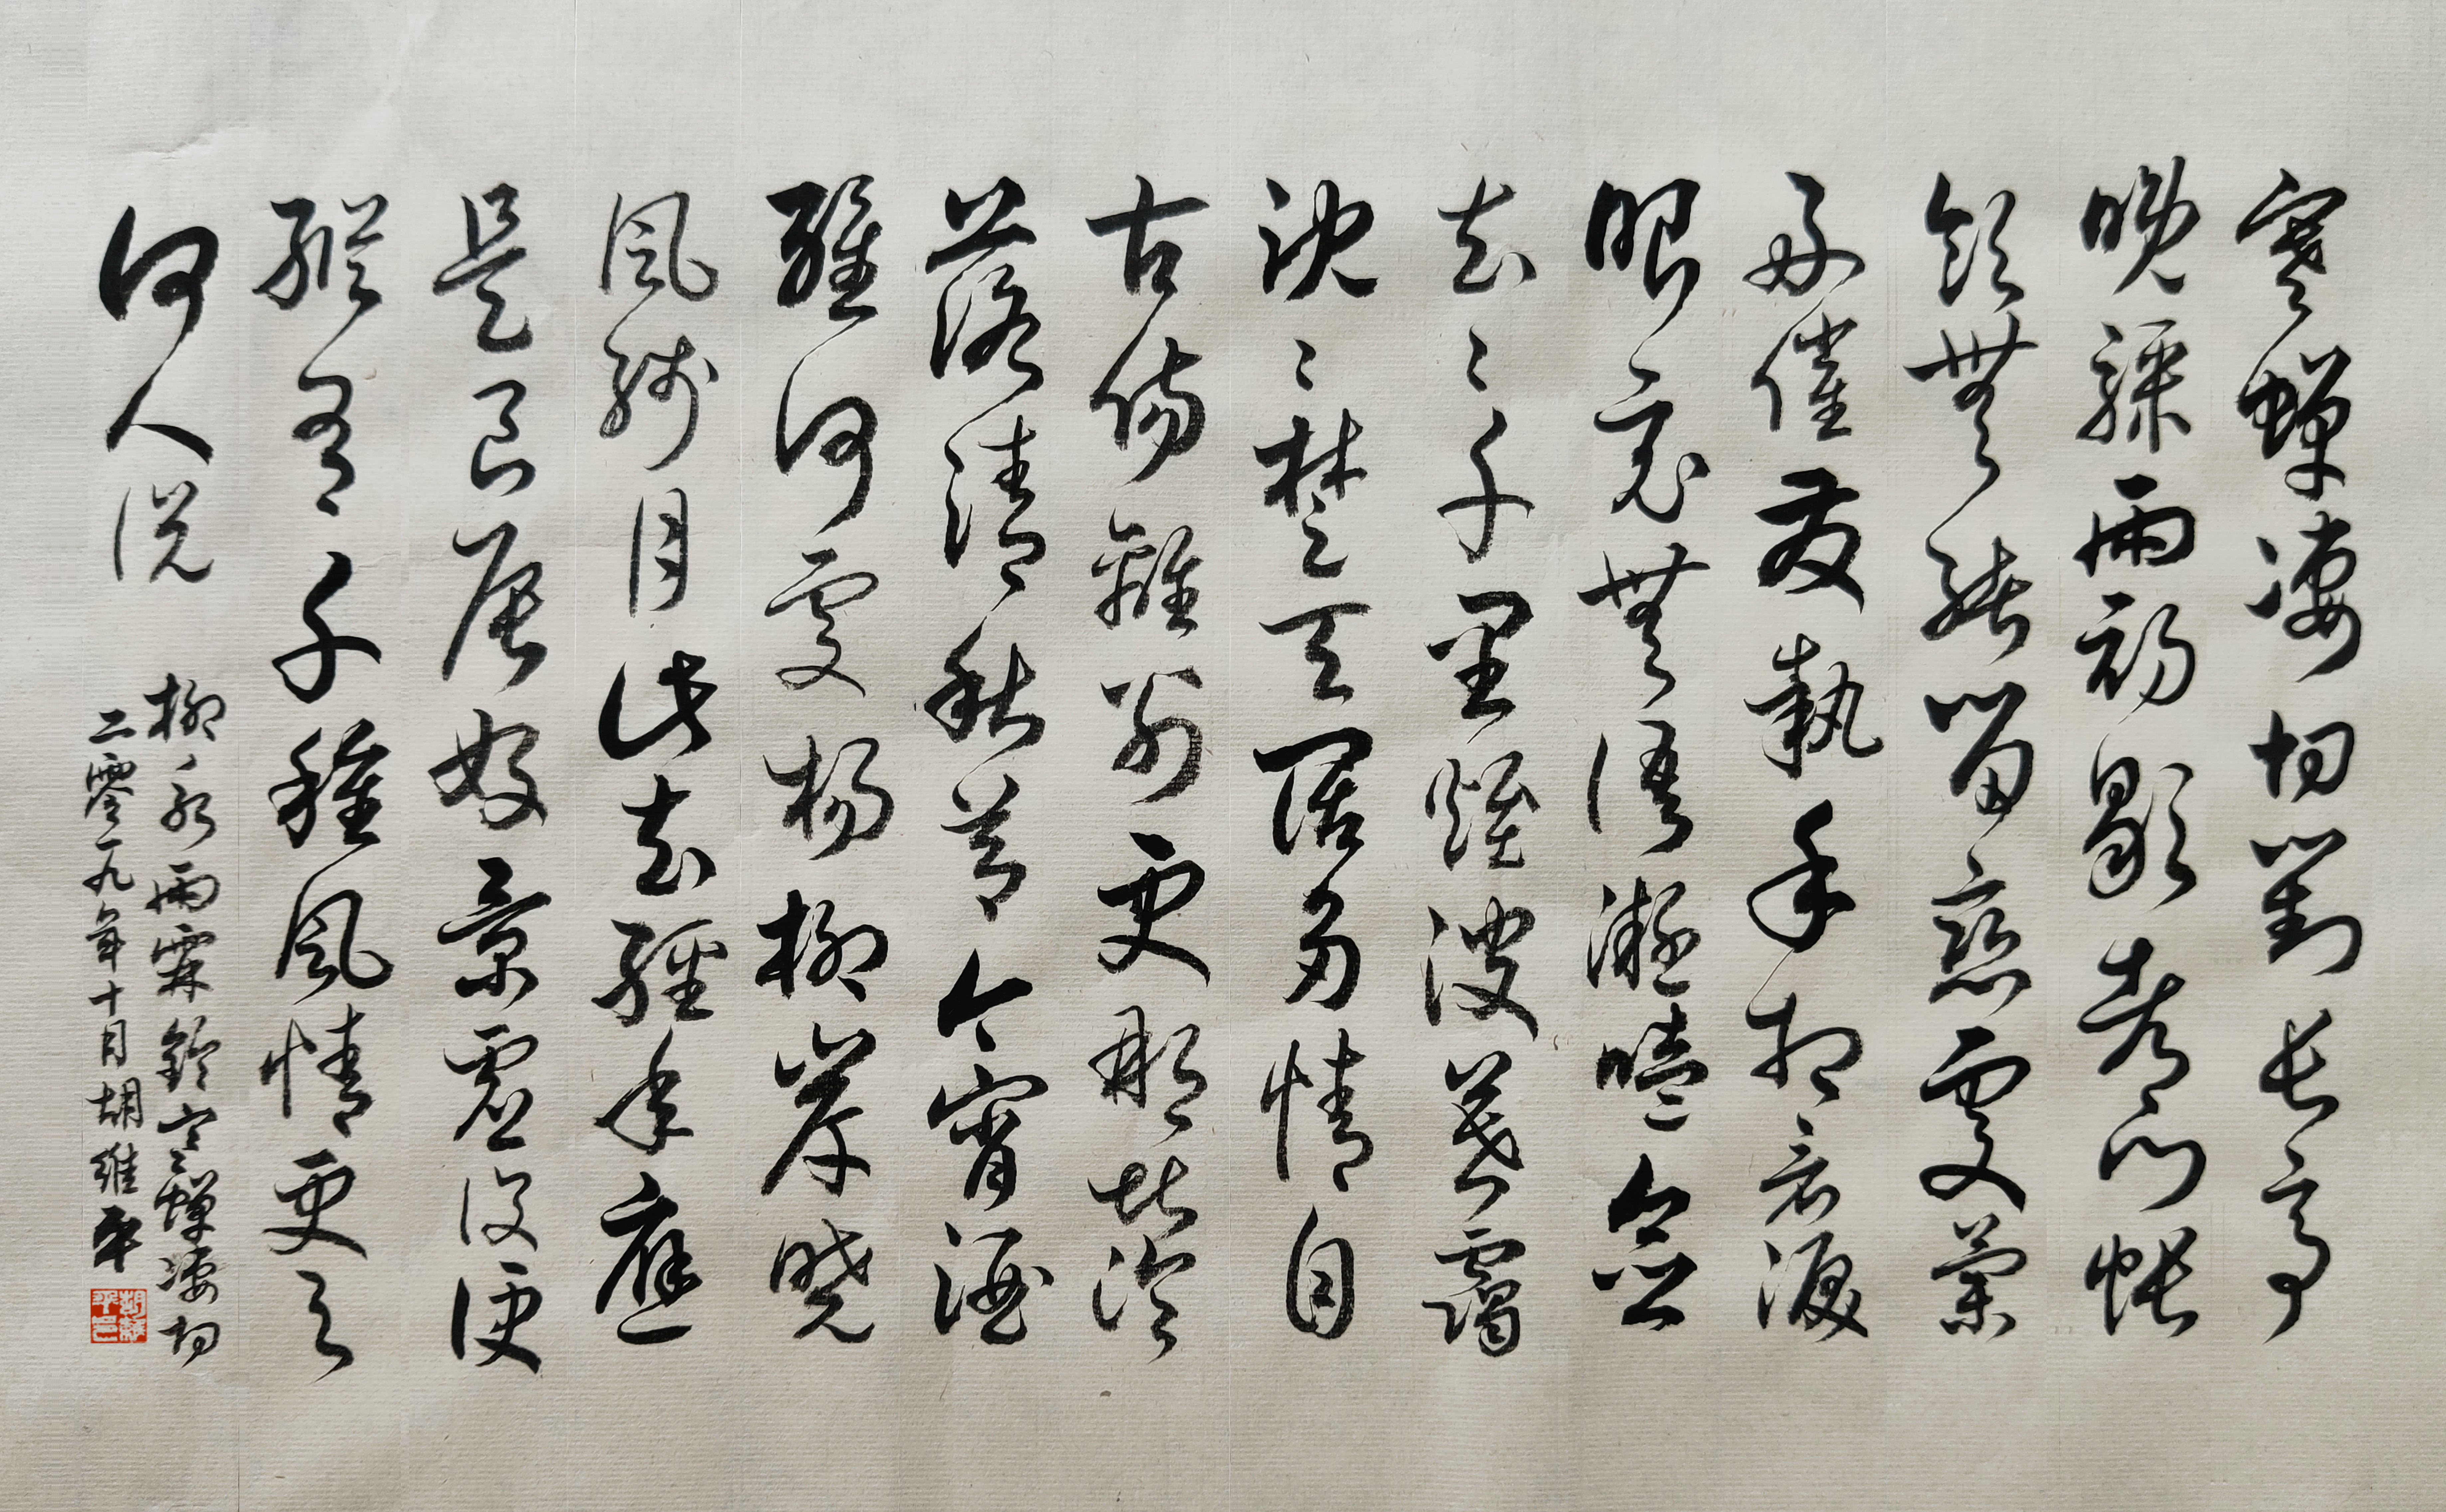 寒蟬淒切對長亭
晚驟雨初歇都門帳
飲無緒留戀處蘭
舟催發執手相看淚
眼竟無語凝噎念
去〻千里煙波暮靄
沈〻楚天闊多情自
古傷離別更那堪冷
落清秋節今宵酒
醒何處楊柳岸曉
風殘月此去經年應
是良辰好景虛設便
縱有千種風情更與
何人說
柳永雨霖鈴寒蟬淒切
二零一九年十月胡維平
胡維平印